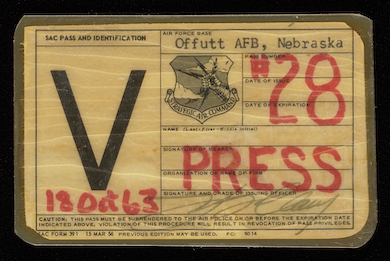 SAC PASS AND IDENTIFICATION
AIR FORCE BASE
Offutt AFB, Nebraska
PASS NUMBER
#28
DATE OF ISSUE
DATE OF EXPIRATION
STRATEGIC AIR COMMAND
V
NAME (Last-First-Middle Initial)
SIGNATURE OF BEARER
PRESS
ORGANIZATION OR NAME OF FIRM
SIGNATURE AND GRADE OF ISSUING OFFICER
18 Oct 63
CAUTION: THIS PASS MUST BE SURRENDERED TO THE AIR POLICE ON OR BEFORE THE EXPIRATION DATE
INDICATED ABOVE. VIOLATION OF THIS PROCEDURE WILL RESULT IN REVOCATION OF PASS PRIVILEGES.
SAC FORM 391 15 MAR 56 PREVIOUS EDITION MAY BE USED.